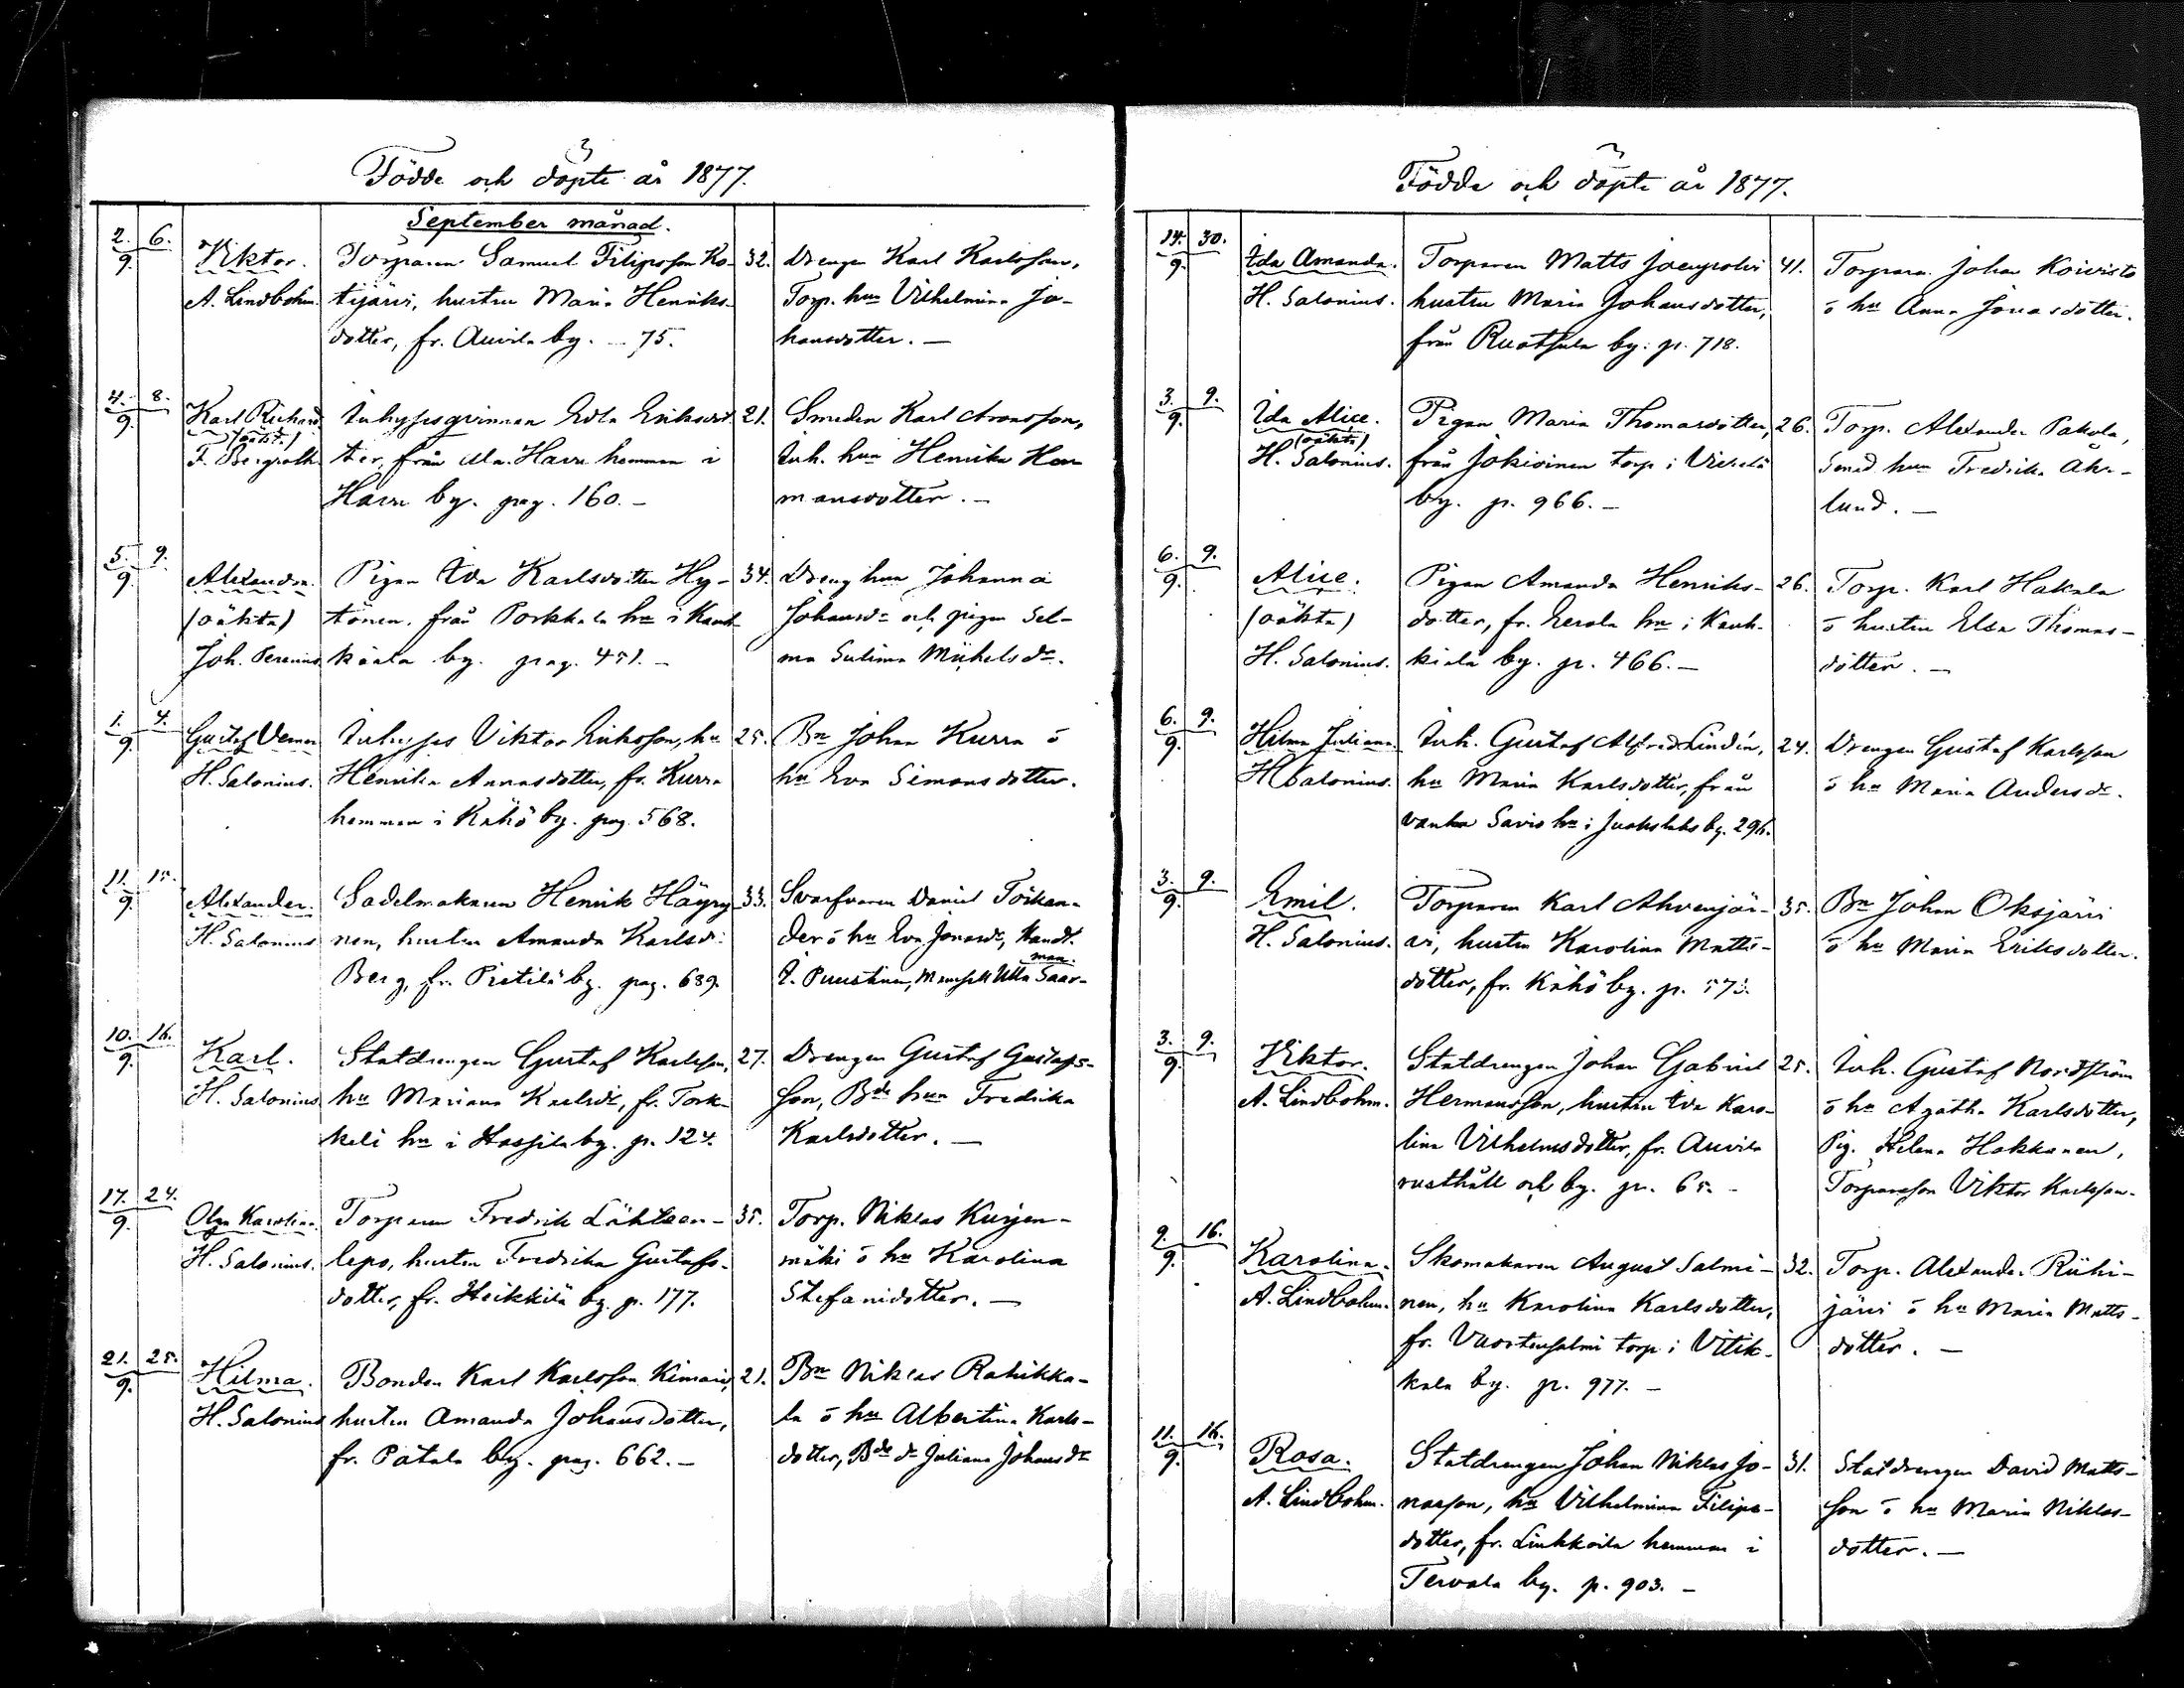 Födde och döpte år 1877.
September månad.
2. 6.
9.
Viktor.
A. Lindbohm.
Torparen Samuel Filipsson Ko-
tijärvi, hustru Maria Henriks-
dotter, fr. Auvila by. 75.
32.
Drengen Karl Karlsson,
Torp. hun Vilhelmina Jo-
hansdotter. —
4. 8.
9.
Karl Richard
(oäkta)
F. Bergroth
Inhysesqvinnan Edla Eriksdot-
ter, från Havu hemman i
Havu by. pag. 160. —
21.
Smeden Karl Aronsson,
Inh. hun Henrika Her
mansdotter. —
5. 9.
9.
Alexandra.
(oäkta)
Joh. Perenius
Pigan Ida Karlsdotter Hy-
tönen. från Porkkala hn i Kauh-
kiala by. pag. 451. —
34.
Dreng hun Johanna
Johansdr och pigan Sel-
ma Sulima Mickelsdr.
1. 4.
9.
Gustaf Verner
H. Salonius.
Inhyses Viktor Eriksson, hu
Henrika Annasdotter, fr. Kurra
hemman i Kähö by. pag. 568.
25.
Bn Johan Kurra o
hu Eva Simonsdotter.
11. 15.
9.
Alexander.
H. Salonius
Sadelmakaren Henrik Häyry-
nen, hustru Amanda Karlsdr
Berg, fr. Pietilä by. pag. 689.
33.
Svarfvaren Daniel
der o hu Eva Jonasdr, Handl.
man.
Puustinen, Mamsell Ulla Saar-
10. 16.
9.
Karl.
H. Salonius
Statdrengen Gustaf Karlsson,
hu Mariana Karlsdr, fr. Tork-
keli hn i Hassila by. p. 124.
27.
Drengen Gustaf Gustafs-
son, Bde hun Fredrika
Karlsdotter. —
17. 24.
9.
Olga Karolina
H. Salonius.
Torparen Fredrik Lähteen-
lepo, hustru Fredrika Gustafs-
dotter, fr. Heikkilä by. p. 177.
35.
Torp. Niklas Kurjen-
mäki o hu Karolina
Stefanidotter. —
21. 25.
9.
Hilma.
H. Salonius
Bonden Karl Karlsson Kimari,
hustru Amanda Johansdotter,
fr. Pätala by. pag. 662. —
21.
Bn Niklas Rahikka-
la o hu Albertina Karls-
dotter, Bde dr Juliana Johansdr
Födde och döpte år 1877.
14. 30.
9.
Ida Amanda.
H. Salonius.
Torparen Matts Joenpolvi
hustru Maria Johansdotter,
från Ruotsula by. p. 718.
41.
Torparen Johan Koivisto
o hu Anna Jonasdotter.
3. 9.
9.
Ida Alice.
(oäkta)
H. Salonius.
Pigan Maria Thomasdotter,
från Jokivinen torp i Vieselä
by. p. 966. —
26.
Torp. Alexander Pakola,
Smed. hun Fredrika Åhr-
lund. —
6. 9.
9.
Alice.
(oäkta)
H. Salonius.
Pigan Amanda Henriks-
dotter, fr. Eerola hn i Kauh-
kiala by. p. 466. —
26.
Torp. Karl Hakala
o hustru Elsa Thomas-
dotter. —
6. 9.
9.
Hilma Juliana
H. Salonius.
Inh. Gustaf Alfred Lindén,
hu Maria Karlsdotter, från
vanha Savio hn i by. 296.
24.
Drengen Gustaf Karlsson
o hu Maria Andersdr.
3. 9.
9.
Emil.
H. Salonius.
Torparen Karl Ahvenjär-
vi, hustru Karolina Matts-
dotter, fr. Kähö by. p. 573.
35.
Bn Johan Oksjärvi
o hu Maria Eriksdotter.
3. 9.
9.
Viktor.
A. Lindbohm.
Statdrengen Johan Gabriel
Hermansson, hustru Ida Karo-
lina Vilhelmsdotter, fr. Auvila
rusthåll och by. p. 65. —
25.
Inh. Gustaf Nordström
o hu Agatha Karlsdotter,
Pig. Helena Hokkanen,
Torpareson Viktor Karlsson.
9. 16.
9.
Karolina.
A. Lindbohm.
Skomakaren August Salmi-
nen, hu Karolina Karlsdotter,
fr. Vuortensalmi torp i Vitik-
kala by. p. 977. —
32.
Torp. Alexander Riihi-
järvi o hu Maria Matts-
dotter. —
11. 16.
9.
Rosa.
A. Lindbohm.
Statdrengen Johan Niklas Jo-
nasson, hu Vilhelmina Filips-
dotter, fr. Linkkoila hemman i
Tervala by. p. 903. —
31.
Statdrengen David Matts-
son o hu Maria Niklas-
dotter. —